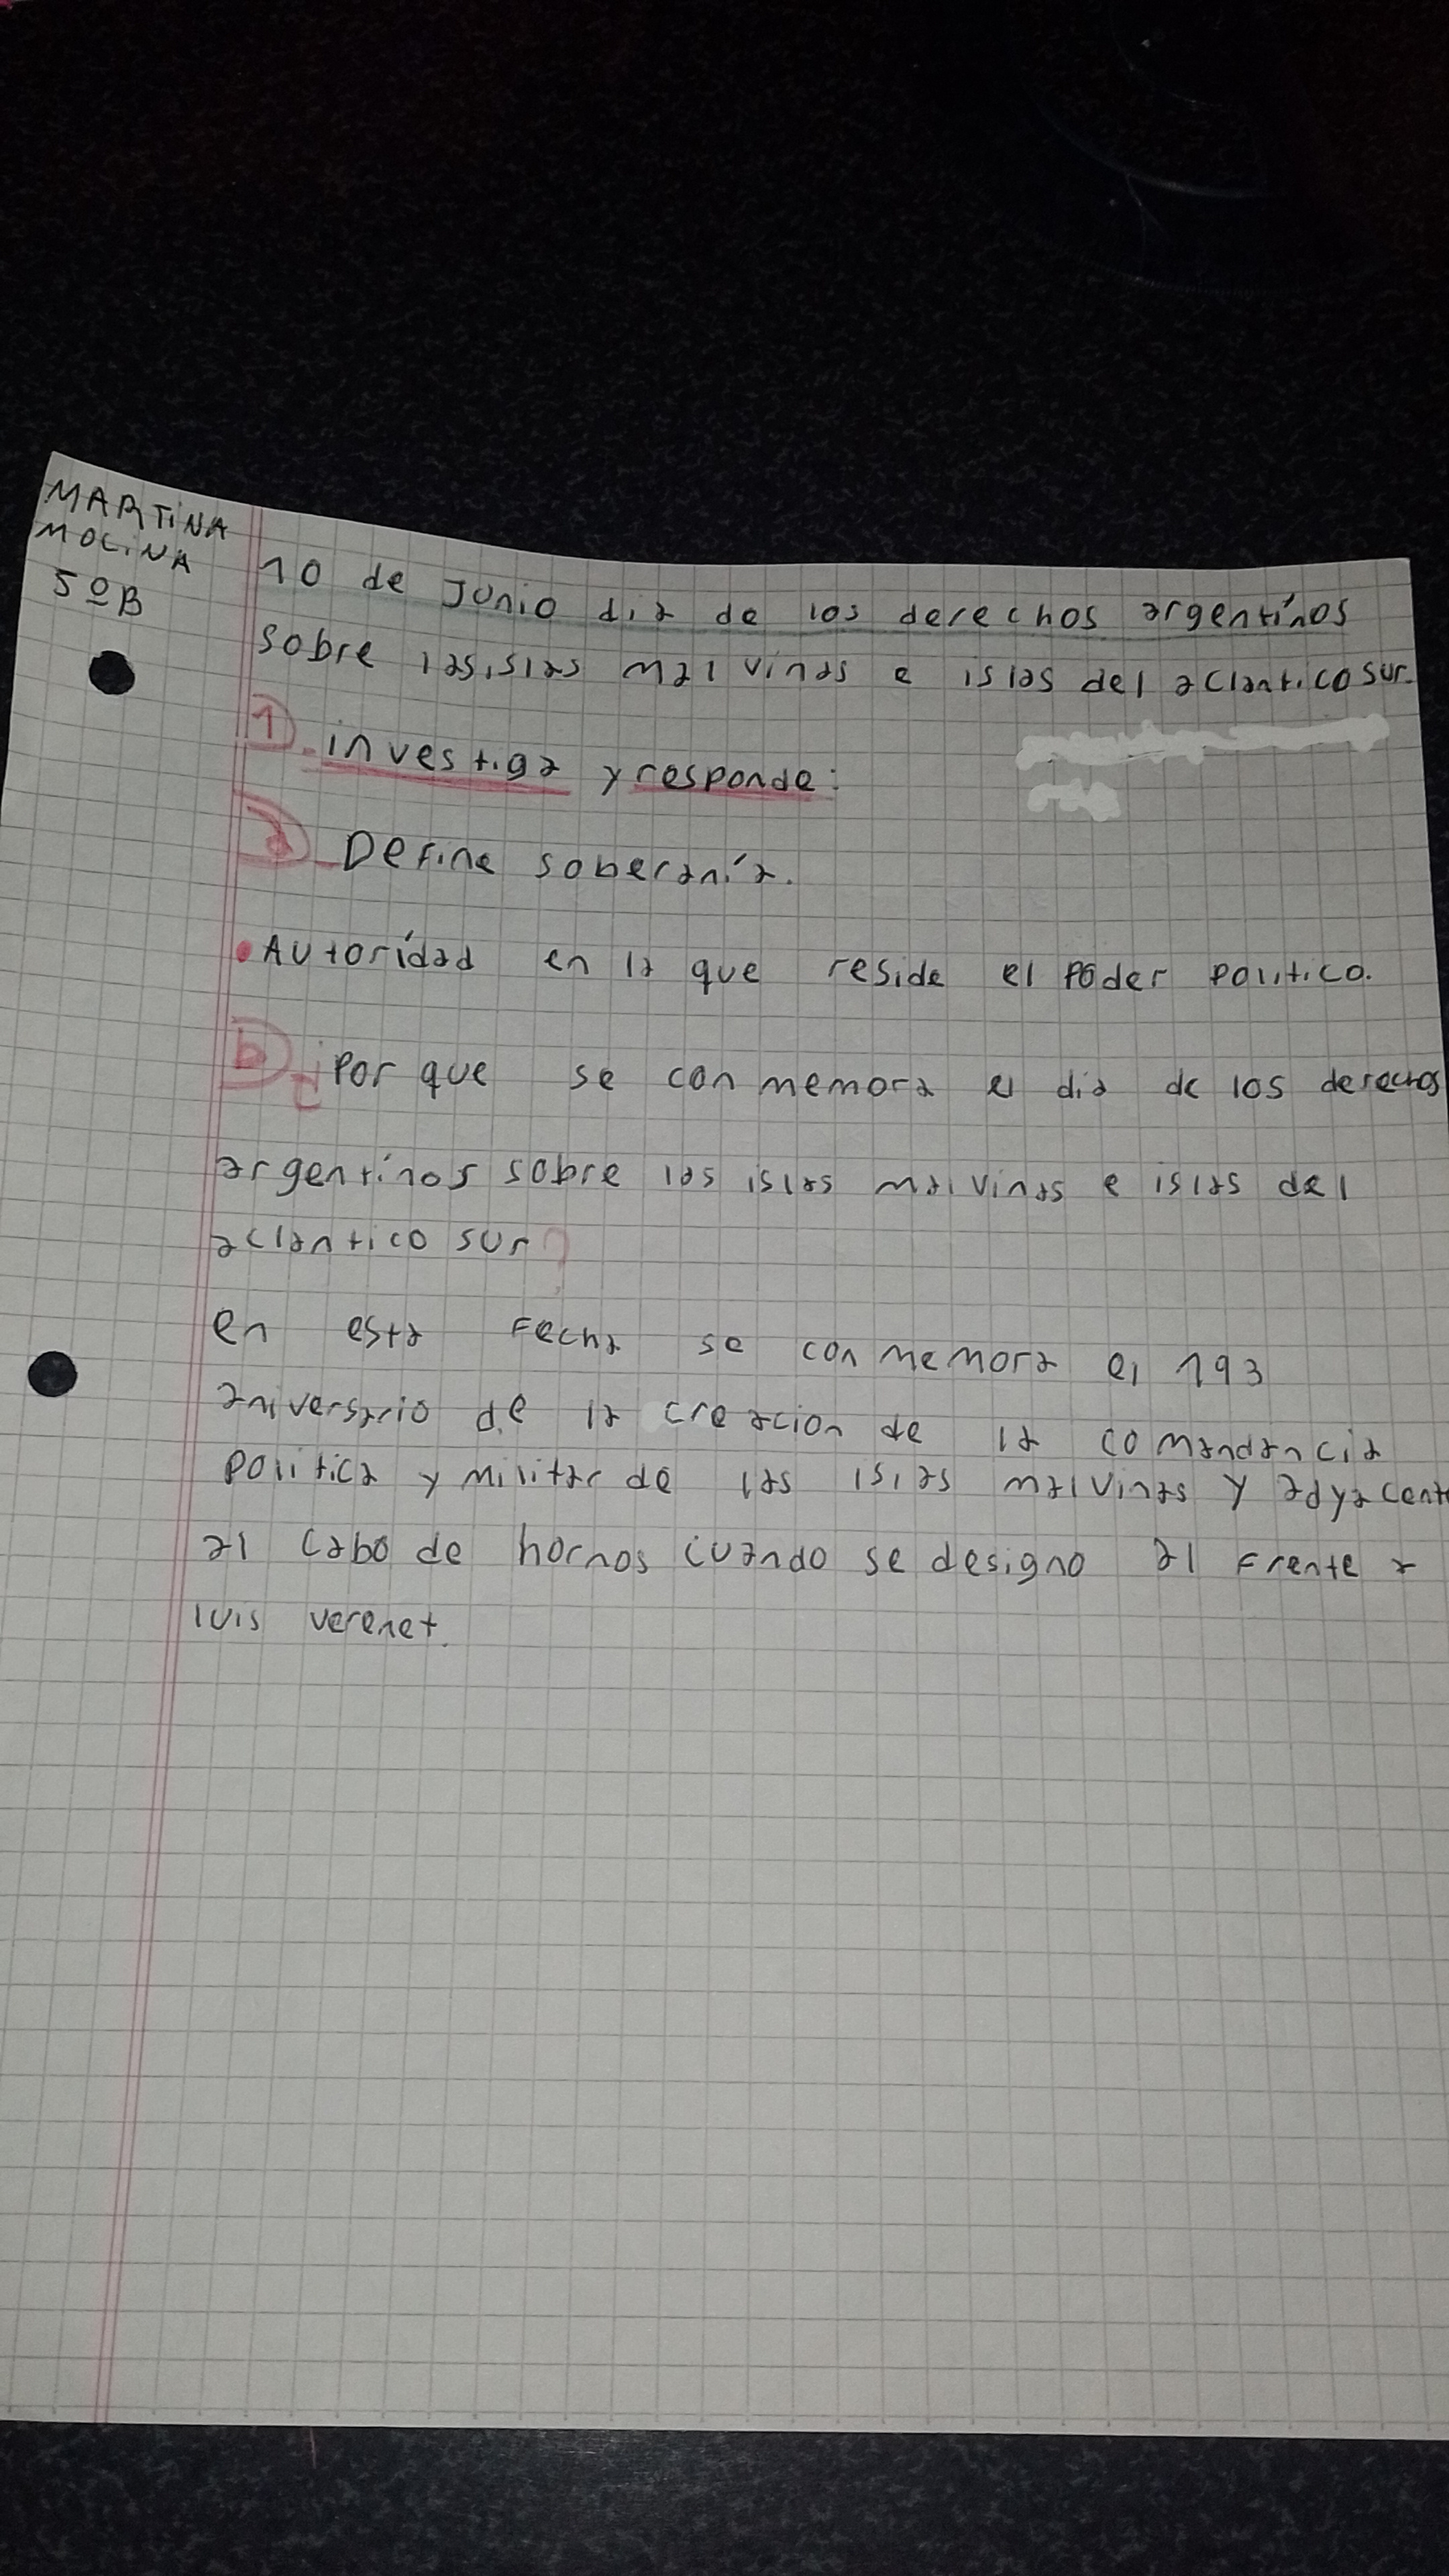 MARTiNA
MOLiNA
5ºB
10 de Junio dia de los derechos argentinos
sobre las islas malvinas e islas del aclantico sur.
1).investiga y responde:
a)_Define soberanía.
•Autoridad en la que reside el poder politico.
b)_¿Por que se conmemora el dia de los derechos
argentinos sobre las islas malvinas e islas del
aclantico sur?
en esta Fecha se conmemora el 193
aniversario de la creacion de la comandancia
politica y militar de las islas malvinas y adyacente
al cabo de hornos cuando se designo al frente a
luis verenet.